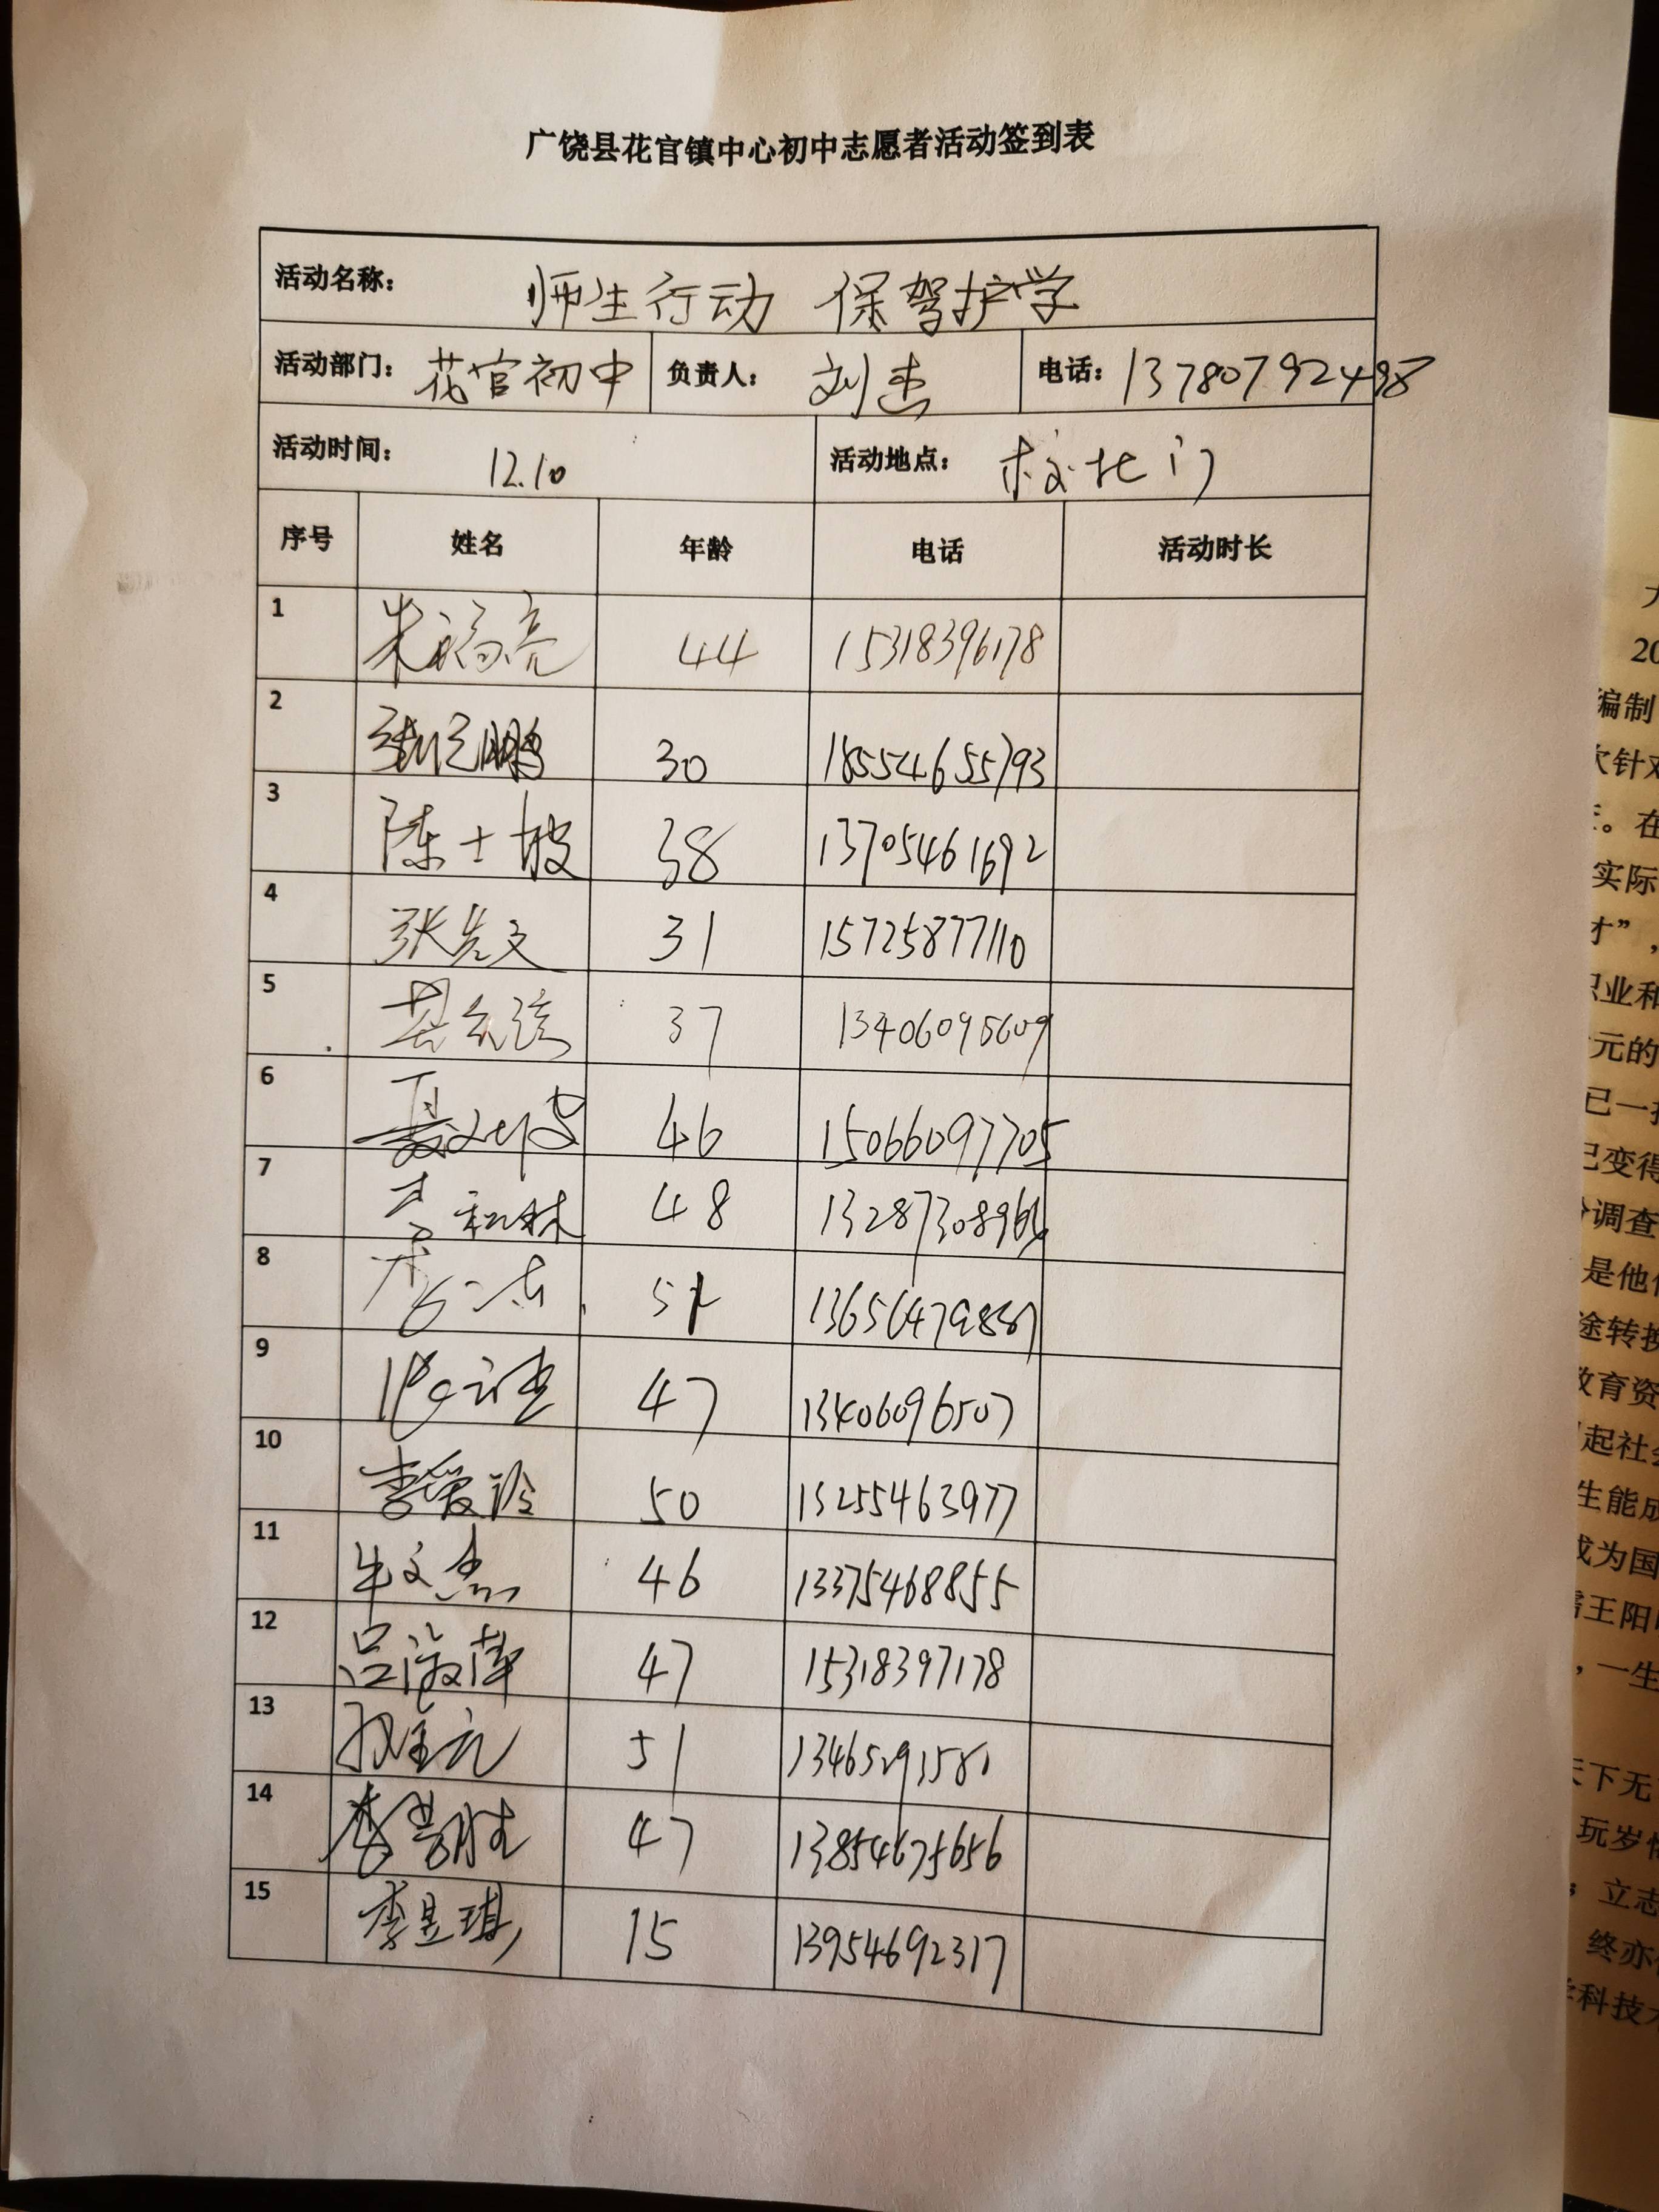 广饶县花官镇中心初中志愿者活动签到表
活动名称： 师生行动 保驾护学
活动部门： 花官初中 负责人： 刘杰 电话： 13780792498
活动时间： 12.10 活动地点： 校北门
序号 姓名 年龄 电话 活动时长
1 朱福亮 44 15318396178
2 30 18554655793
3 陈士坡 38 13705461692
4 张先文 31 15725877110
5 37 13406095609
6 46 15066097705
7 李和林 48
8
9 47 13406096507
10 李爱玲 50 13255463977
11 牛文杰 46 13375468855
12 吕淑萍 47 15318397178
13 51
14 47 13854675656
15 李昱琪 15 13954692317
20
编制
次针对
。在
实际
才”，
职业和
元的
已一
已变得
调查
是他
途转换
教育资
起社会
生能成
成为国
王阳
，一生
天下无
玩岁
立志
终亦
学科技